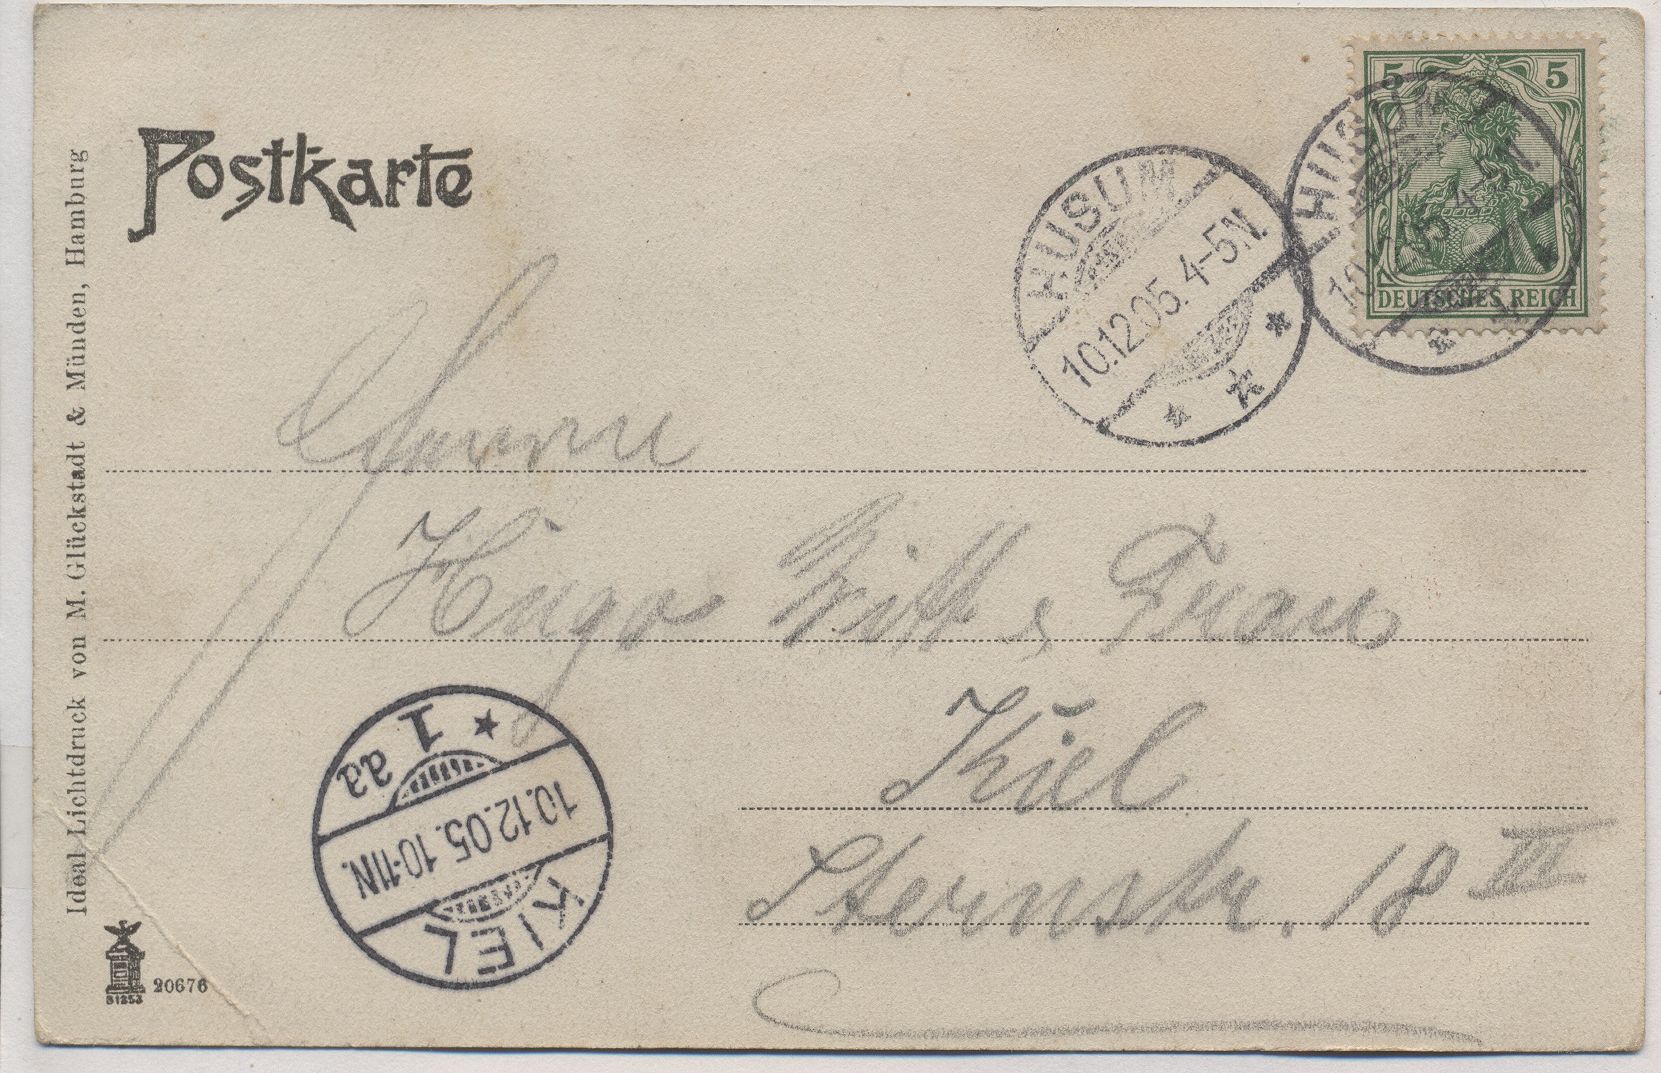 Postkarte
5 5
DEUTSCHES REICH
HUSUM
10.12.05. 4-5N.
HUSUM
10.12.05. 4-5N.
Ideal-Lichtdruck von M. Glückstadt & Münden, Hamburg
Herrn
Hugo Witt & Frau
Kiel
Sternstr. 18 III
KIEL
10.12.05. 10-11N.
1
aa
20676
81253